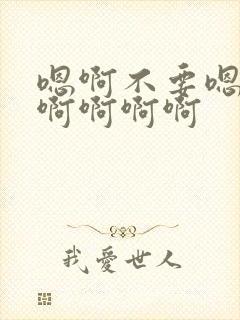 嗯啊不要嗯
啊啊啊啊
我愛世人